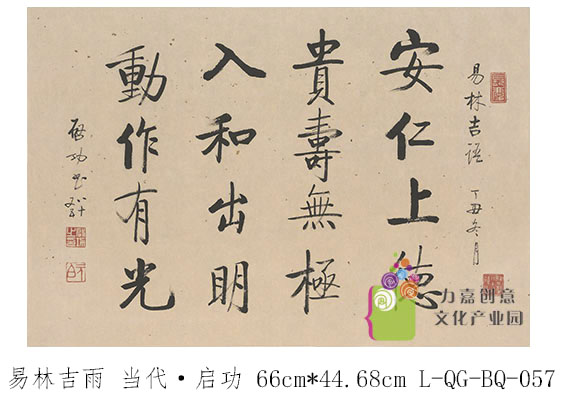 易林吉語 丁丑冬月
安仁上德
貴壽無極
入和出明
動作有光
啟功书
力嘉创意
文化产业园
易林吉雨 当代·启功 66cm*44.68cm L-QG-BQ-057